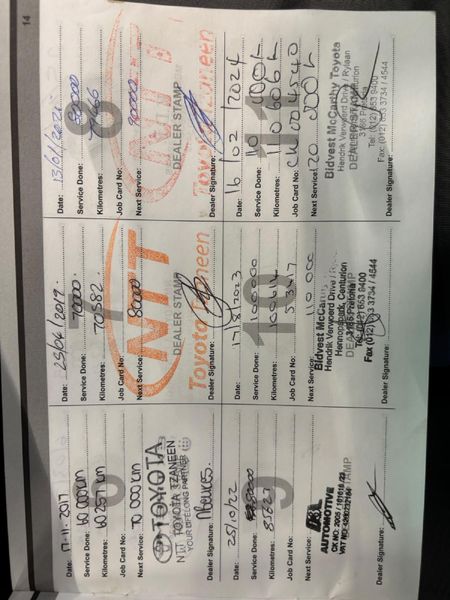 14
Date: 17.11.2017
Service Done: 60 000 km
Kilometres: 60 257 km
Job Card No:
Next Service: 70 000 km
TOYOTA
NTT TOYOTA TZANEEN
YOUR LIFELONG PARTNER
Dealer Signature:
Date: 25/04/2019.
Service Done: 70000.
Kilometres: 70582
Job Card No:
Next Service: 80000
7
NTT
DEALER STAMP
Toyota Tzaneen
Dealer Signature:
Date: 13/01/2021
Service Done: 80000
Kilometres:
Job Card No:
Next Service: 90000
8
NTT
DEALER STAMP
Toyota Tzaneen
Dealer Signature:
Date: 25/10/22
Service Done:
Kilometres: 87627
Job Card No:
Next Service:
9
AUTOMOTIVE
CK NO: 2005 /
VAT NO:
Dealer Signature:
Date: 17/8/2023
Service Done: 100000
Kilometres:
Job Card No: 53417
Next Service: 110 000
10
Bidvest McCarthy
Hendrik Verwoerd Drive /
Hennopspark, Centurion
DEALER STAMP
Tel: (012) 653 9400
Fax (012) 653 3734 / 4544
Dealer Signature:
Date: 16/02/2024
Service Done: 110 000k
Kilometres: 110 606k
Job Card No:
Next Service: 120 000k
11
Bidvest McCarthy Toyota
Hendrik Verwoerd Drive /
DEALER STAMP
Tel: (012) 653 9400
Fax: (012) 653 3734 / 4544
Dealer Signature: